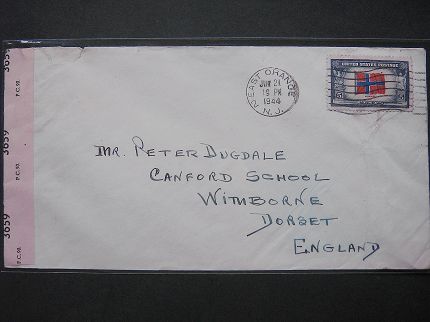 3659
P.C. 90.
3659
P.C. 90.
3659
P.C. 90.
EAST ORANGE
JUN 21
19 PM
1944
N.J.
UNITED STATES POSTAGE
Mr. Peter Dugdale
Canford School
Wimborne
Dorset
England